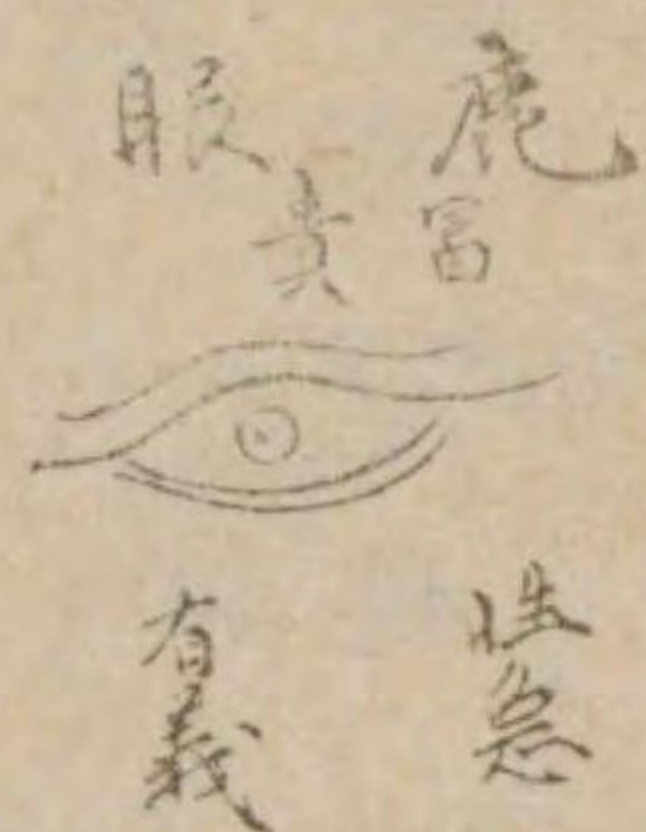 鹿眼
冨貴
性急
有義